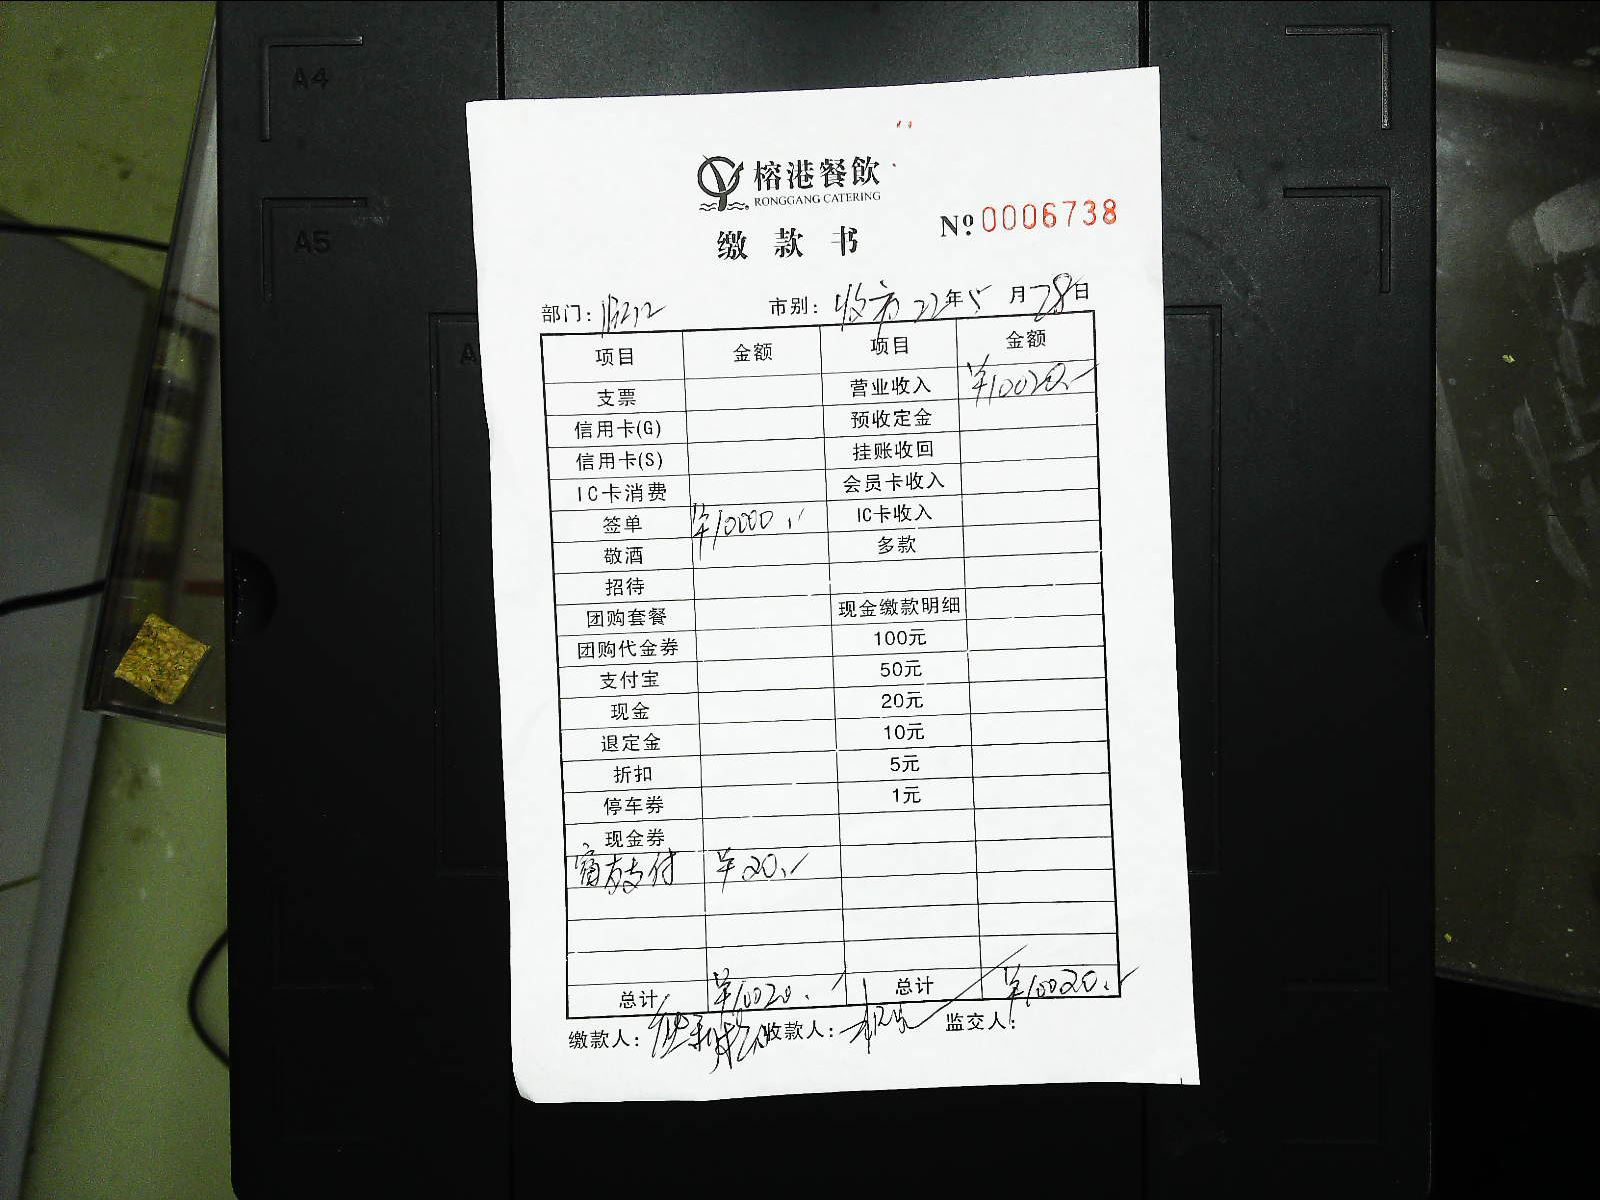 A4
A5
榕港餐飲
RONGGANG CATERING
缴款书
№ 0006738
部门： 市别：收市 22年5月28日
项目 金额 项目 金额
支票 营业收入 ¥10020.-
信用卡(G) 预收定金
信用卡(S) 挂账收回
IC卡消费 会员卡收入
签单 ¥10000.- IC卡收入
敬酒 多款
招待
团购套餐 现金缴款明细
团购代金券 100元
支付宝 50元
现金 20元
退定金 10元
折扣 5元
停车券 1元
现金券
支付 ¥20.-
总计 ¥10020.- 总计 ¥10020.-
缴款人： 收款人： 监交人：